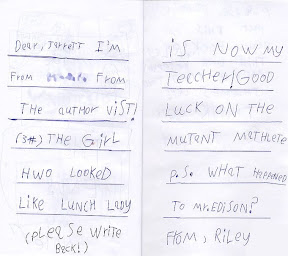 Dear, Jarrett I'm
From From
THE author VisT!
(3#) THE GirL
HWO LOOKeD
Like LUNCH LADY
(pLeaSe Write
Back!)
iS NOW my
Teccher! GOOD
LUCK ON THe
mutant mathlete
P.S. WHAT HAPPANeD
TO mr.EDISON?
From, RiLey